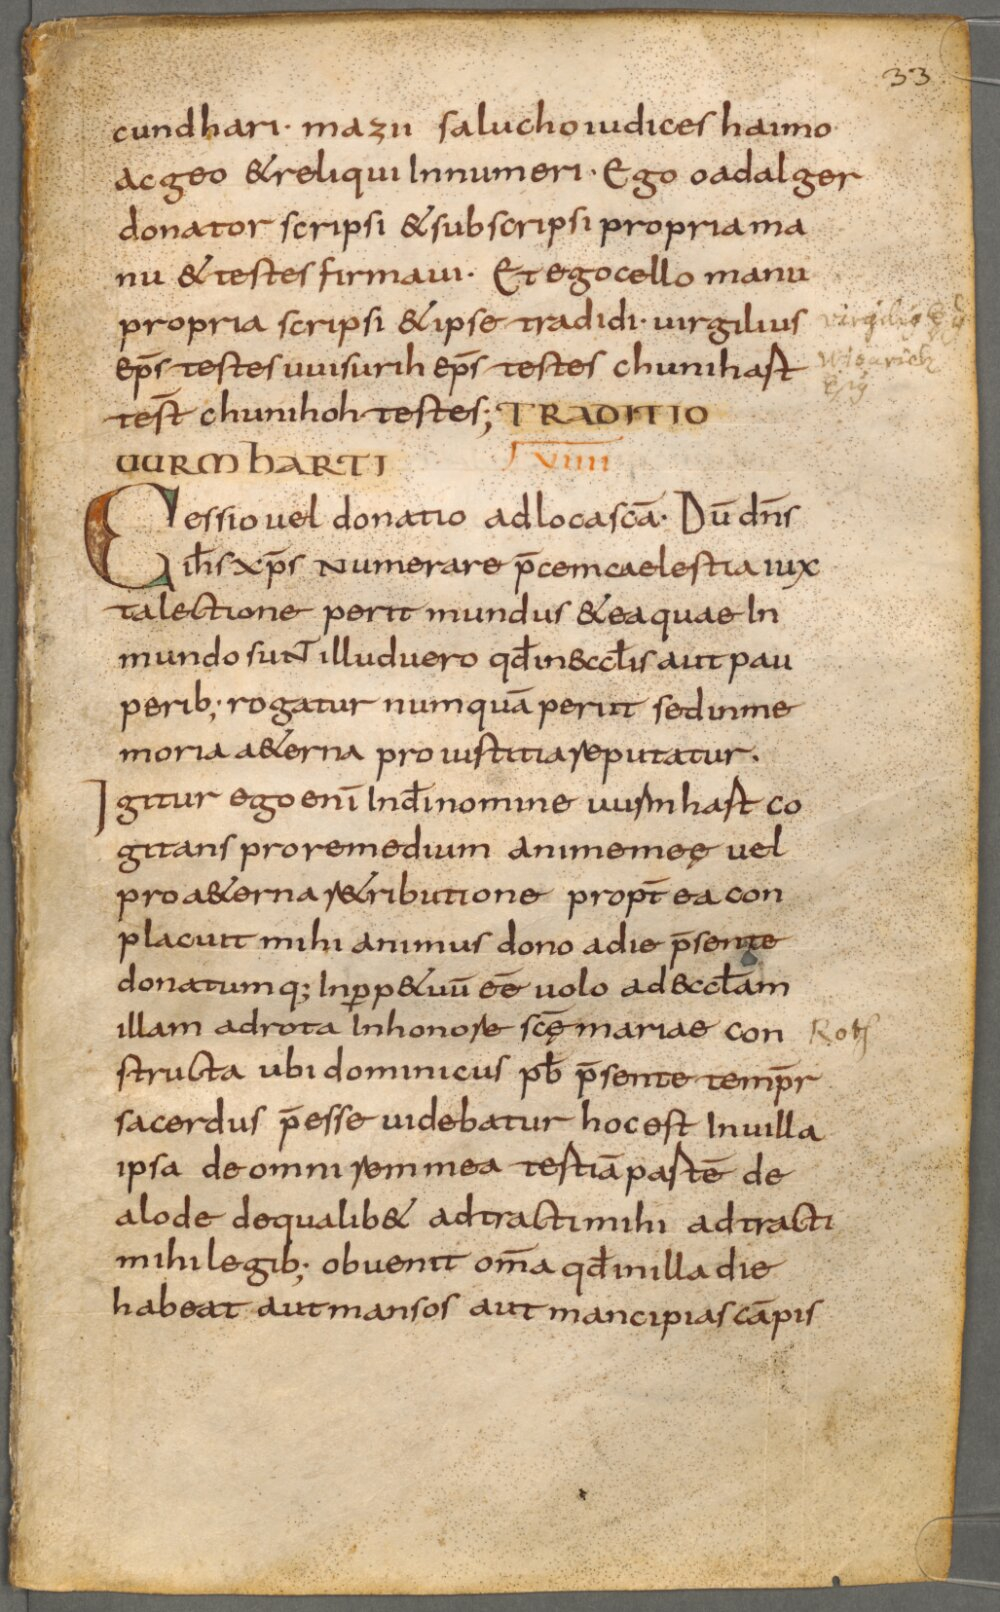 33
cundhari· mazu salucho iudices haimo
ac geo & reliqui Innumeri· Ego oadalger
donator scripsi & subscripsi propria ma
nu & testes firmaui· Et ego cello manu
propria scripsi & ipse tradidi· uirgilius
virgilius
ep̄s testes uuisurih ep̄s testes chunihast
Wisurich
test̄ chunihoh testes; TRADITIO
UURMHARTI
V̄IIII
Cessio uel donatio ad loca sc̄a· Dū dn̄s
ih̄s xp̄s numerare p̄cem caelestia iux
ta lectione perit mundus & ea quae In
mundo suNT illud uero qđ in &ccl̄is aut pau
perib; rogatur numquā perit sed in me
moria a&erna pro iustitia reputatur.
Igitur ego enī In dī nomine uurmhart co
gitans pro remedium anime meę uel
pro a&erna r&ributione propt̄ ea con
placuit mihi animus dono a die p̄sente
donatumq; In ꝑp&uū eē uolo ad &ccl̄am
illam ad rota In honore sc̄ę mariae con
Rot
structa ubi dominicus pb̄ p̄sente temp̄r
sacerdus p̄esse uidebatur hoc est In uilla
ipsa de omni rem mea testiā partē de
alode de qualib& adtracti mihi adtracti
mihi legib; obuenit om̄a qđ in illa die
habeat aut mansos aut mancipias cāpis